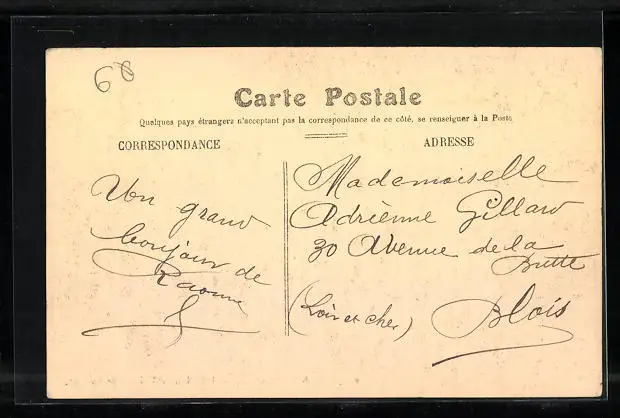 60
Carte Postale
Quelques pays étrangers n'acceptant pas la correspondance de ce côté, se renseigner à la Poste
CORRESPONDANCE
ADRESSE
Un grand
bonjour de
Mademoiselle
Adrienne Gillard
30 Avenue de la
Butte
(Loir et cher) Blois